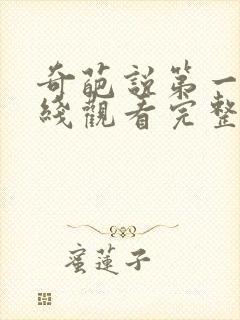 奇葩說第一
綫觀看完整
蜜蓮子